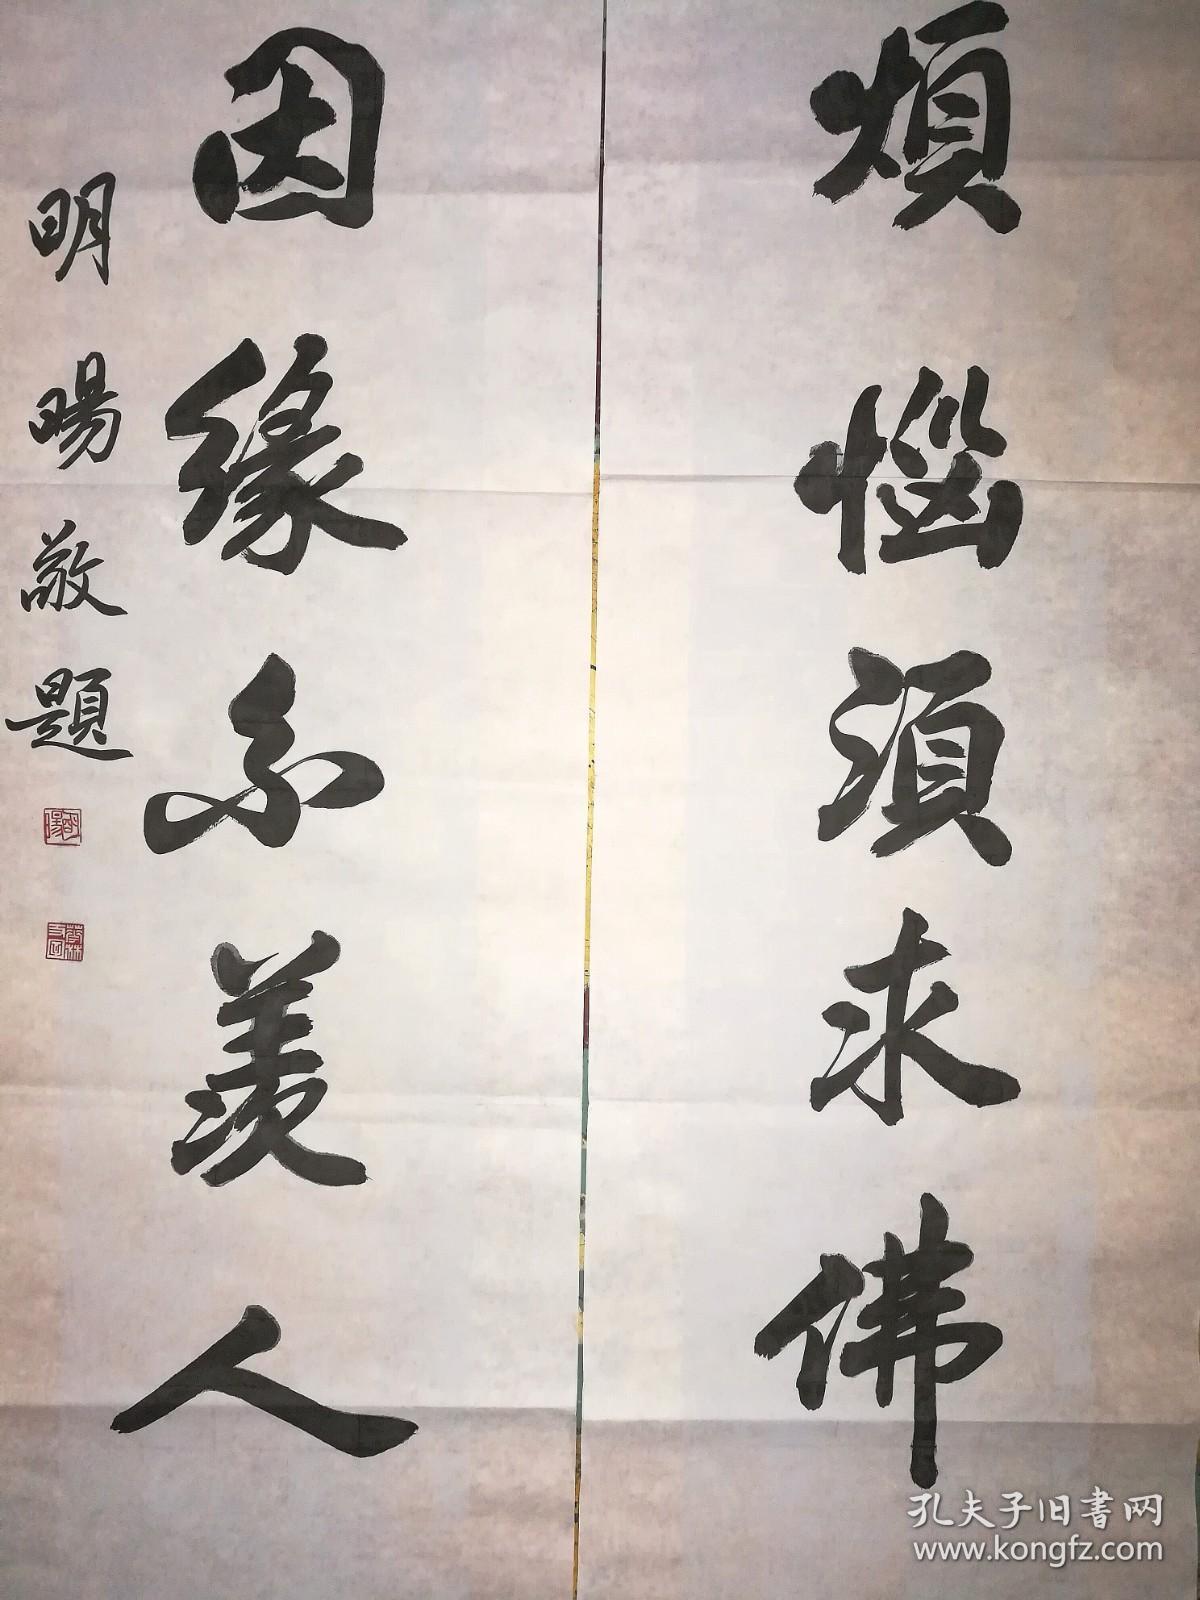 煩惱須求佛
因緣不羨人
明暘敬題
明暘
孔夫子旧书网
www.kongfz.com